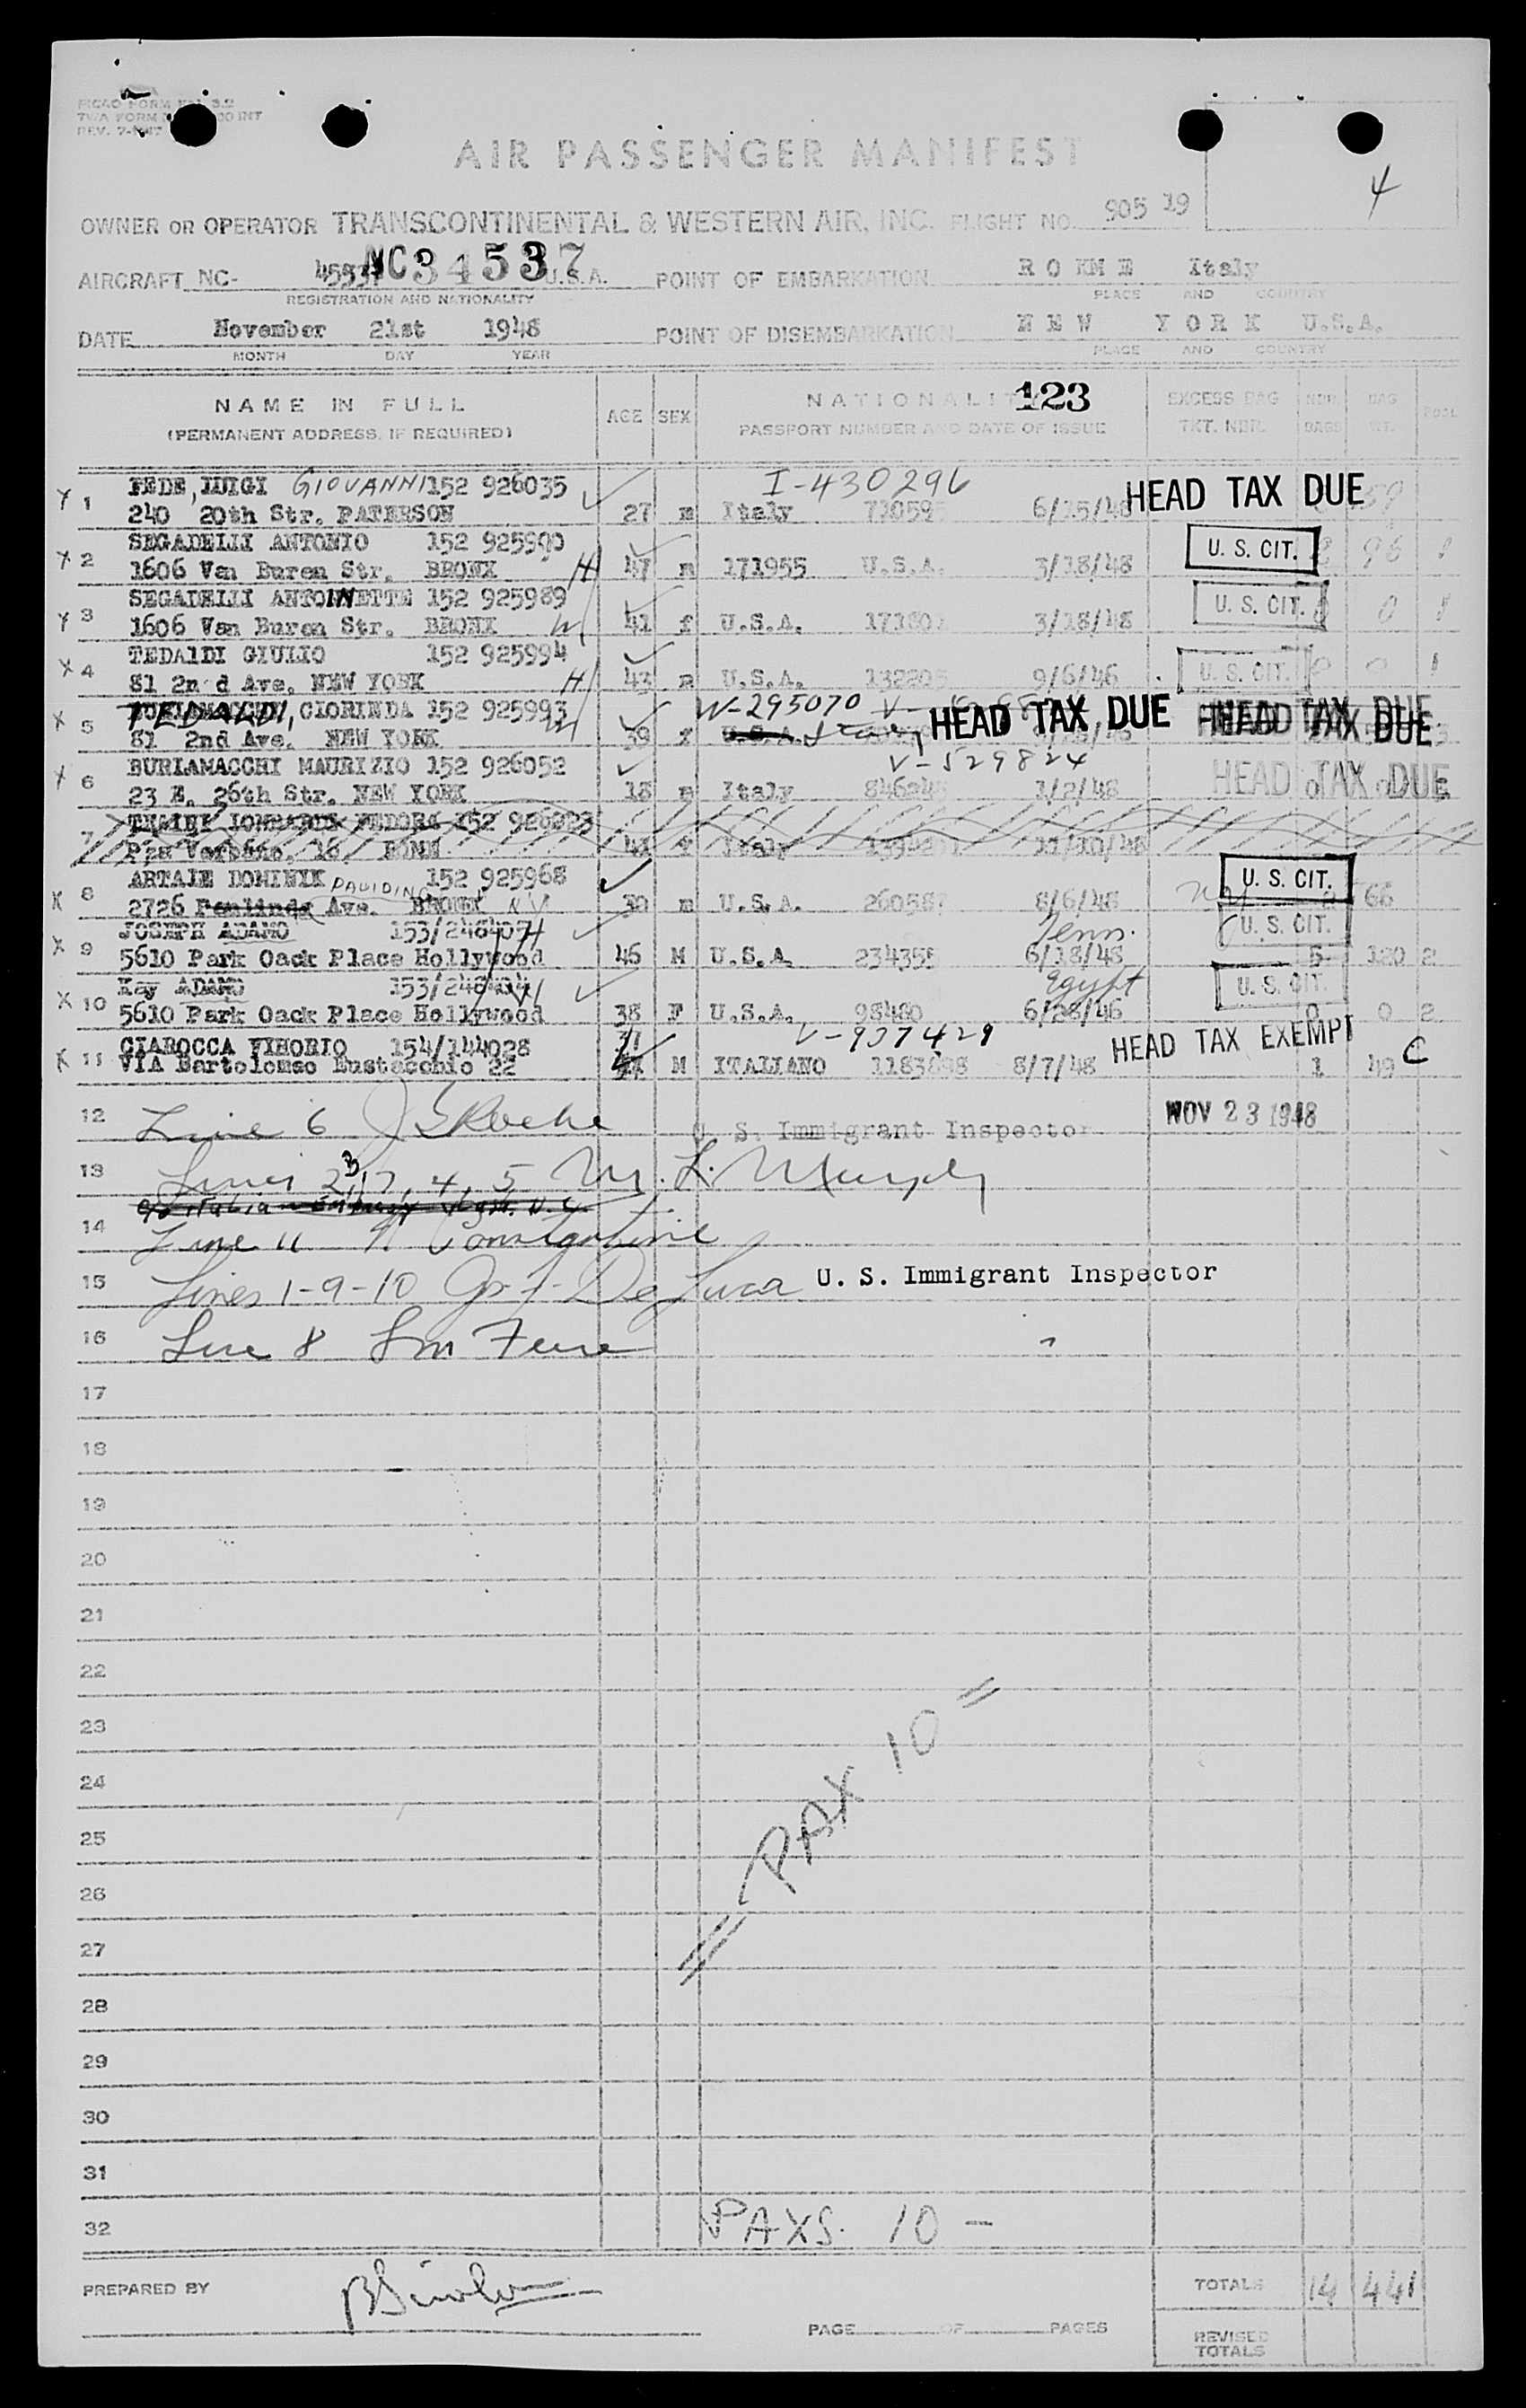 REV. 7-1-47
4
AIR PASSENGER MANIFEST
OWNER OR OPERATOR TRANSCONTINENTAL & WESTERN AIR, INC. FLIGHT NO. 905 19
AIRCRAFT NC- NC34537 U.S.A. POINT OF EMBARKATION ROME Italy
REGISTRATION AND NATIONALITY PLACE AND COUNTRY
DATE November 21st 1948 POINT OF DISEMBARKATION NEW YORK U.S.A.
MONTH DAY YEAR PLACE AND COUNTRY
NAME IN FULL AGE SEX NATIONALITY 123 EXCESS BAG NBR. BAG POOL
(PERMANENT ADDRESS, IF REQUIRED) PASSPORT NUMBER AND DATE OF ISSUE TKT. NBR. BAGS WT.
FEDE, LUIGI GIOVANNI 152 926035 I-430296 HEAD TAX DUE
X 1 240 20th Str. PATERSON 27 m Italy 6/15/48
SEGADELII ANTONIO 152 925990 U. S. CIT.
X 2 1606 Van Buren Str. BRONX H 47 m 171955 U.S.A. 3/18/48 96 1
SEGADELII ANTOINNETTE 152 925989 U. S. CIT.
X 3 1606 Van Buren Str. BRONX W 41 f U.S.A. 3/18/48 0 1
TEDALDI GIULIO 152 925994 U. S. CIT.
X 4 81 2nd Ave. NEW YORK H 43 m U.S.A. 9/6/46 0 0 1
TEDALDI, CLORINDA 152 925993 V-295070 HEAD TAX DUE HEAD TAX DUE
X 5 81 2nd Ave. NEW YORK W 39 f U.S.A. Italy
BURLAMACCHI MAURIZIO 152 926052 V-529824 HEAD TAX DUE
X 6 23 E. 26th Str. NEW YORK 18 m Italy 1/2/48
7 Pza Verbano, 16 ROME 41 f Italy 11/10/48
ARTALE DOMINIK PAULDING 152 925968 U. S. CIT.
X 8 2726 Ave. BRONX NY 30 m U.S.A. 8/6/48 66
JOSEPH ADAMO H Tenn. U. S. CIT.
X 9 5610 Park Oack Place Hollywood 46 M U.S.A. 6/18/48 5 120 2
Kay ADAMO W Egypt U. S. CIT.
X 10 5610 Park Oack Place Hollywood 38 F U.S.A. 98480 6/28/46 0 0 2
CIAROCCA VIHORIO 154/144028 37 V-937429 HEAD TAX EXEMPT
X 11 VIA Bartolomeo Eustacchio 22 M ITALIANO 8/7/48 1 49 C
12 Line 6 U. S. Immigrant Inspector NOV 23 1948
13 Lines 2, 3, 7, 4, 5 M. L. Murphy
14 Line 11
15 Lines 1-9-10 De Luca U. S. Immigrant Inspector
16 Line 8 "
17
18
19
20
21
22
23
24
25
26
27
28
29
30
31
32
= PAX 10 =
PAXS. 10 -
PREPARED BY
TOTALS 14 441
PAGE OF PAGES
REVISED TOTALS